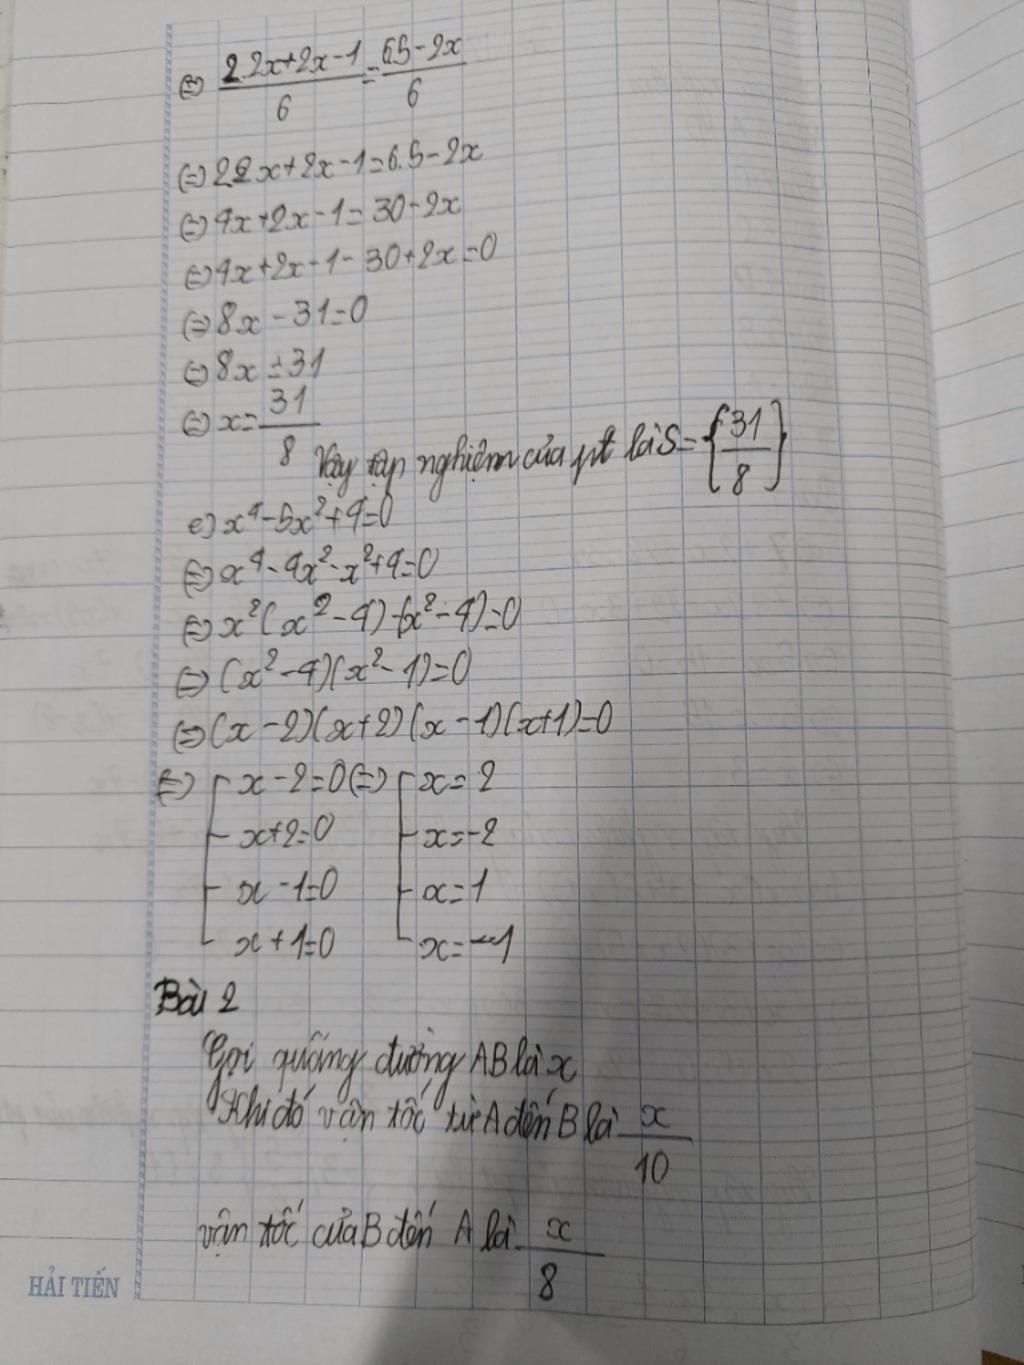 ⇔ 2.2x+2x-1/6 = 6.5-2x/6
⇔ 2.2x+2x-1=6.5-2x
⇔ 4x+2x-1=30-2x
⇔ 4x+2x-1-30+2x=0
⇔ 8x-31=0
⇔ 8x=31
⇔ x=31/8
Vậy tập nghiệm của pt là S={31/8}
e) x⁴-5x²+4=0
⇔ x⁴-4x²-x²+4=0
⇔ x²(x²-4)-(x²-4)=0
⇔ (x²-4)(x²-1)=0
⇔ (x-2)(x+2)(x-1)(x+1)=0
⇔ [ x-2=0 ⇔ [ x=2
x+2=0 x=-2
x-1=0 x=1
x+1=0 x=-1
Bài 2
Gọi quãng đường AB là x
Khi đó vận tốc từ A đến B là x/10
vận tốc của B đến A là x/8
HẢI TIẾN